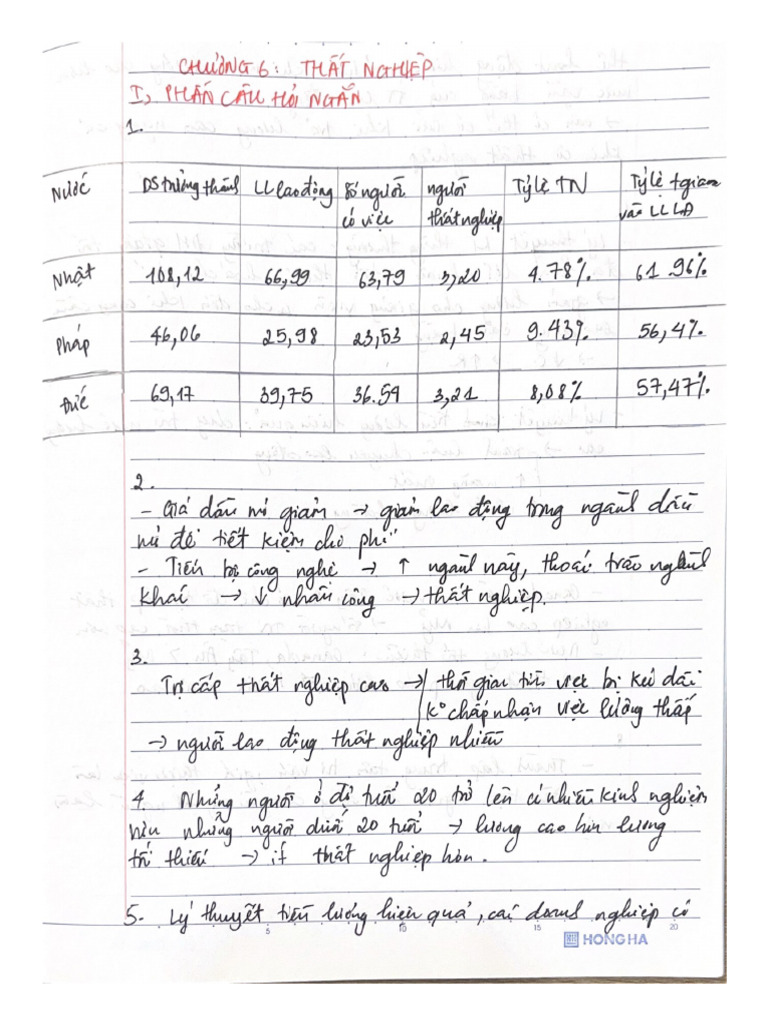 CHƯƠNG 6: THẤT NGHIỆP
I, PHẦN CÂU HỎI NGẮN
1.
Nước DS trưởng thành LL lao động Số người có việc người thất nghiệp Tỷ lệ TN Tỷ lệ tgian vào LLLĐ
Nhật 108,12 66,99 63,79 3,20 4.78% 61.96%
Pháp 46,06 25,98 23,53 2,45 9.43% 56,4%
Đức 69,17 39,75 36.59 3,21 8,08% 57,47%
2.
- Giá dầu mỏ giảm → giảm lao động trong ngành dầu
mỏ để tiết kiệm chi phí
- Tiến bộ công nghệ → ↑ ngành này, thoái trào ngành
khác → ↓ nhân công → thất nghiệp.
3.
Trợ cấp thất nghiệp cao → thời gian tìm việc bị kéo dài
K° chấp nhận việc lương thấp
→ người lao động thất nghiệp nhiều
4. Những người ở độ tuổi 20 trở lên có nhiều kinh nghiệm
hơn những người dưới 20 tuổi → lương cao hơn lương
tối thiểu → ít thất nghiệp hơn.
5. Lý thuyết tiền lương hiệu quả, các doanh nghiệp có
5 10 15 20
HONG HA